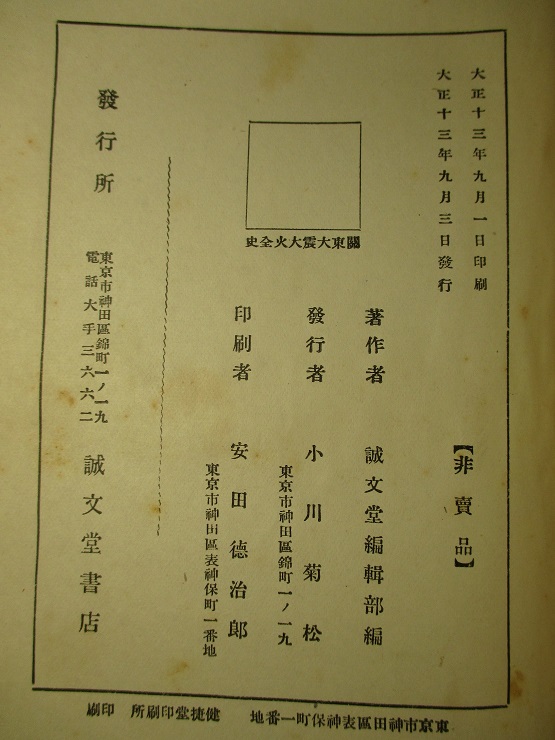 大正十三年九月一日印刷
大正十三年九月三日發行
【非賣品】
關東大震大火全史
著作者 誠文堂編輯部編
發行者 小川菊松
東京市神田區錦町一ノ一九
印刷者 安田德治郎
東京市神田區表神保町一番地
發行所 誠文堂書店
東京市神田區錦町一ノ一九
電話大手三六六二
東京市神田區表神保町一番地 健捷堂印刷所 印刷